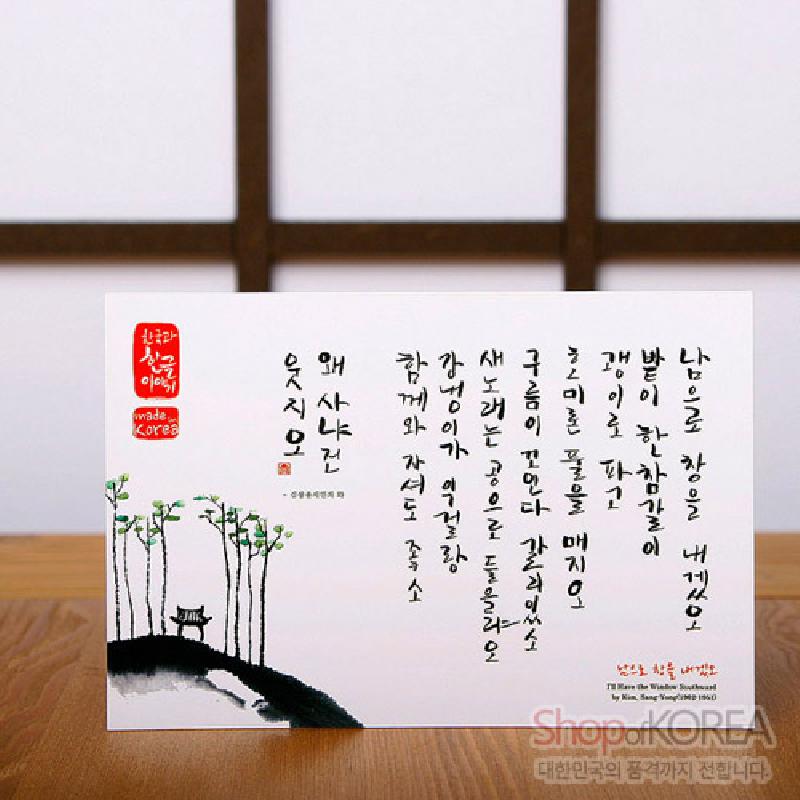 남으로 창을 내겠오
밭이 한참갈이
괭이로 파고
호미론 풀을 매지오
구름이 꼬인다 갈리있소
새노래는 공으로 들을랴오
강냉이가 익걸랑
함께와 자셔도 좋소
왜 사냐건
웃지오
한국과
한글
이야기
made in
Korea
남으로 창을 내겠오
I'll Have the Window Southward
by Kim, Sang-Yong(1902-1951)
ShopofKOREA
대한민국의 품격까지 전합니다.